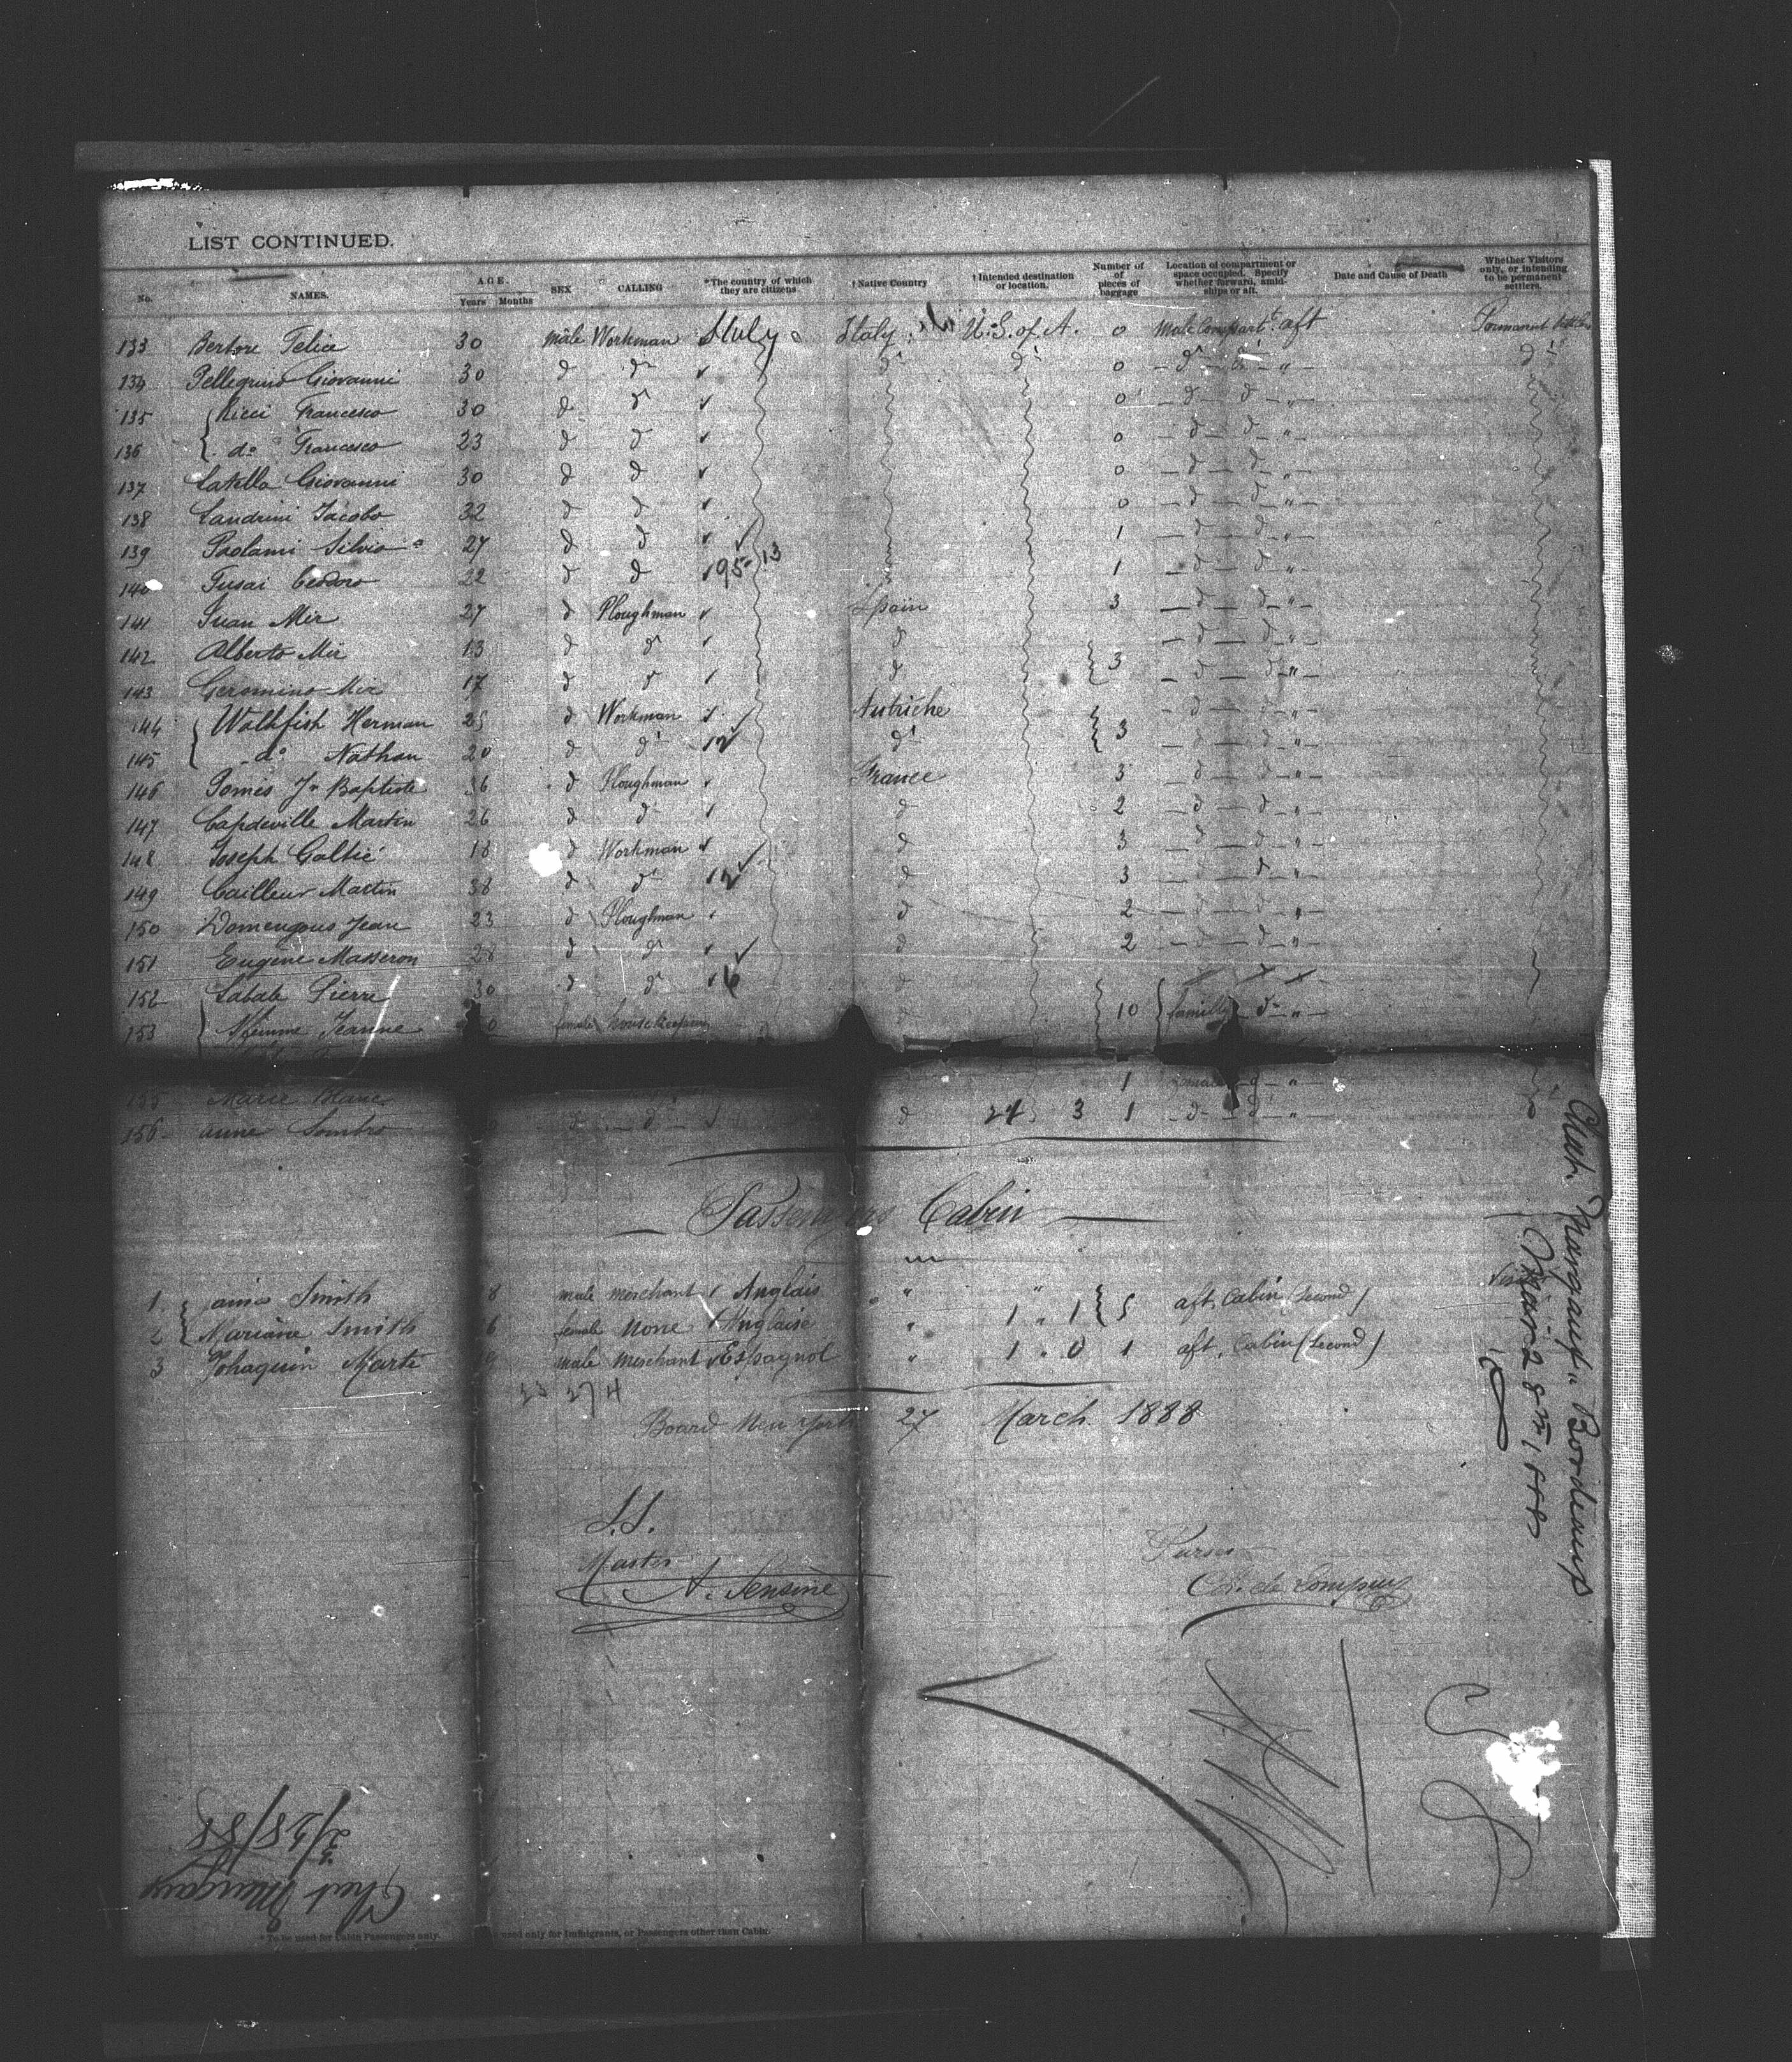 LIST CONTINUED.
No. NAMES. AGE. Years Months SEX CALLING *The country of which they are citizens †Native Country †Intended destination or location. Number of pieces of baggage Location of compartment or space occupied. Specify whether forward, amidships or aft. Date and Cause of Death Whether Visitors only, or intending to be permanent settlers.
133 Bertore Felice 30 male Workman Italy Italy U.S. of A. 0 Male Compart.t aft Permanent
134 Pellegrino Giovanni 30 d d° 0 d d "
135 Ricci Francesco 30 d d 0 d d "
136 d° Francesco 23 d d 0 d d "
137 Latella Giovanni 30 d d 0 d d "
138 Landrini Jacobo 32 d d 0 d d "
139 Paolami Silvio 27 d d 1 d d "
140 Fusai 22 d d 195 13 1 d d "
141 Juan Mir 27 d Ploughman Spain 3 d d "
142 Alberto Mir 13 d d° d d d "
143 Geromino Mir 17 d d d 3 d d "
144 Walhfish Herman 25 d Workman Autriche d d "
145 d° Nathan 20 d d° 12 d° 3 d d "
146 Pomès Jn Baptiste 36 d Ploughman France 3 d d "
147 Capdeville Martin 26 d d° d 2 d d "
148 Joseph Galtié 18 d Workman d 3 d d "
149 Cailleur Martin 38 d d° 12 d 3 d "
150 Domengous Jean 23 d Ploughman d 2 d d "
151 Eugène Masseron 28 d d° d 2 d d "
152 Labat Pierre 30 d d° 16 d
153 femme Jeanne female housekeeping d 10 family d° "
155 Marie Blanc 1 female d "
156 anne d d d 24 3 1 d d "
Passengers Cabin
1 Smith 8 male merchant Anglais " "
2 Mariane Smith 6 female None Anglaise " 1 " 1 5 aft. Cabin (Second)
3 Johaquin Marte 9 male merchant Espagnol " 1 " 0 1 aft. Cabin (Second)
23 274
Board New York 27 March 1888
S.S.
Master
A. Sensine
Purser
Chat. Margaux Bordeaux
Mar 28th, 1888
Chat Margaux
3/28/88
* To be used for Cabin Passengers only.
used only for Immigrants, or Passengers other than Cabin.